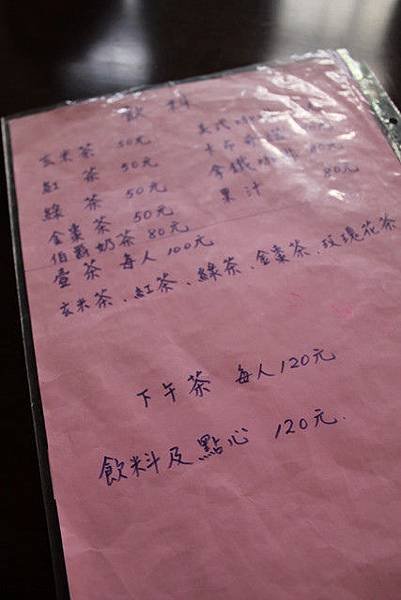 飲料
玄米茶 50元
紅茶 50元
綠茶 50元
金棗茶 50元
伯爵奶茶 80元
美式咖啡
拿鐵咖啡 80元
果汁 80元
壹茶 每人100元
玄米茶、紅茶、綠茶、金棗茶、玫瑰花茶
下午茶 每人120元
飲料及點心 120元.